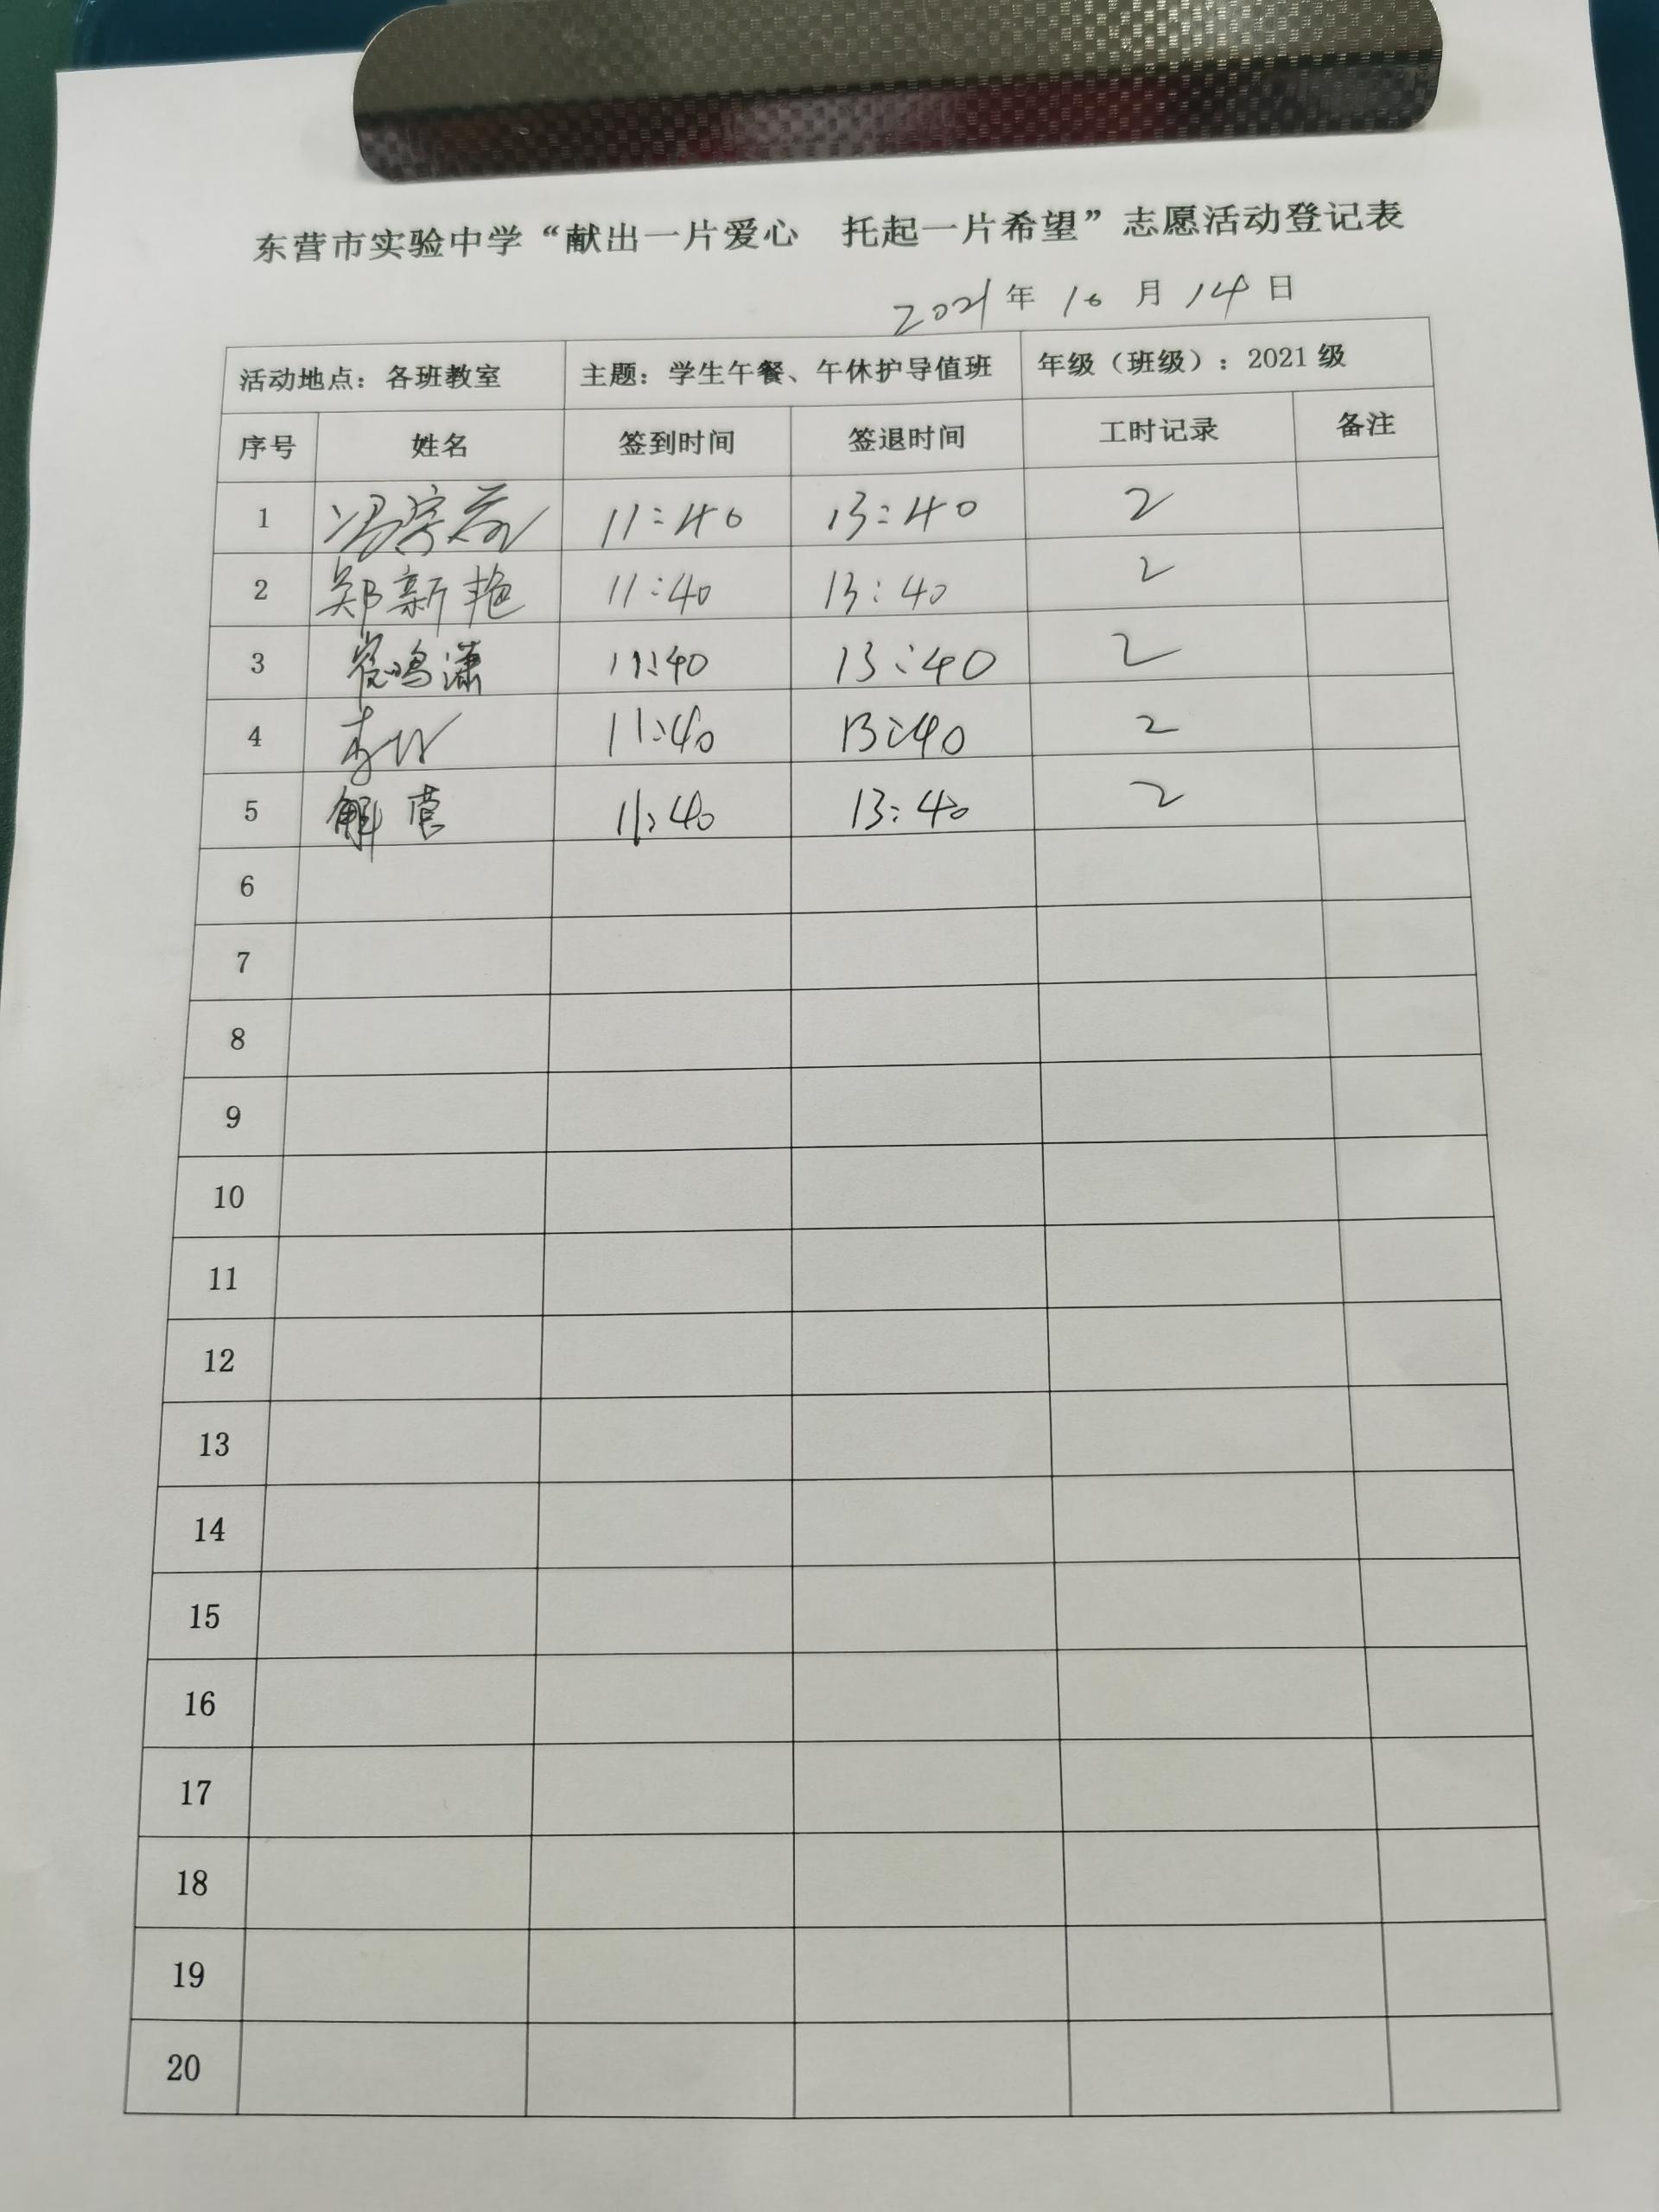 东营市实验中学“献出一片爱心　托起一片希望”志愿活动登记表
2021年10月14日
活动地点：各班教室 主题：学生午餐、午休护导值班 年级（班级）：2021级
序号 姓名 签到时间 签退时间 工时记录 备注
1 冯 11:40 13:40 2
2 郑新艳 11:40 13:40 2
3 崔鸣潇 11:40 13:40 2
4 11:40 13:40 2
5 解营 11:40 13:40 2
6
7
8
9
10
11
12
13
14
15
16
17
18
19
20